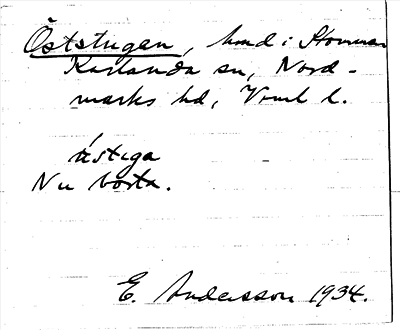 Öststugen, hmd i Stommen
Karlanda sn, Nord-
marks hd, Vrml l.
ùstiga
Nu borta.
E. Andersson 1934.